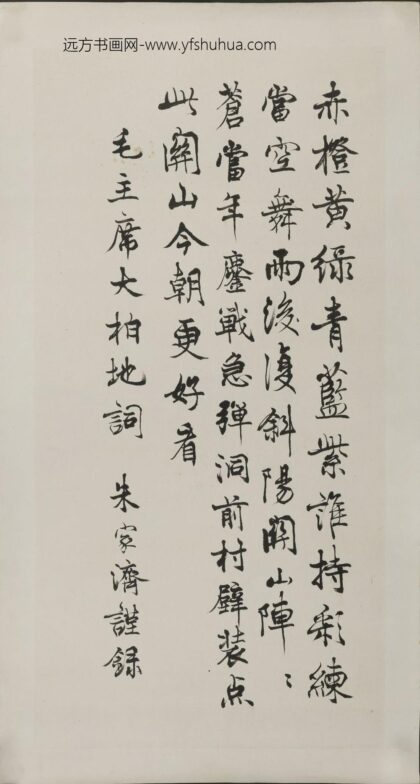 远方书画网-www.yfshuhua.com
赤橙黄綠青藍紫誰持彩練
當空舞雨後復斜陽關山陣〻
蒼當年鏖戰急彈洞前村壁装点
此關山今朝更好看
毛主席大柏地詞 朱家濟謹録